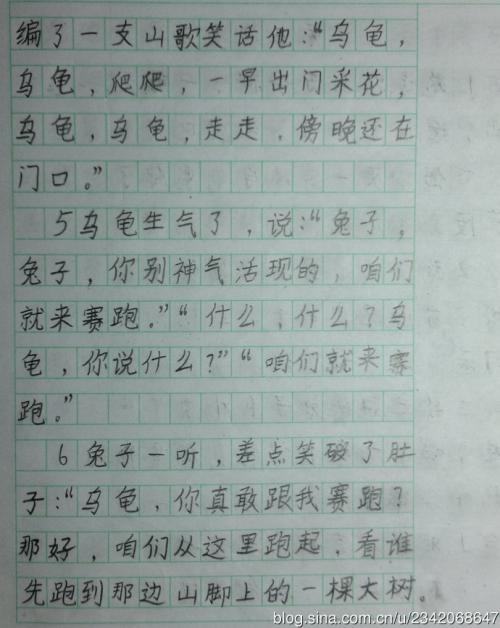 编了一支山歌笑话他:“乌龟,
乌龟,爬爬,一早出门采花,
乌龟,乌龟,走走,傍晚还在
门口。”
5乌龟生气了,说:“兔子,
兔子,你别神气活现的,咱们
就来赛跑。”“什么,什么?乌
龟,你说什么?”“咱们就来赛
跑。”
6兔子一听,差点笑破了肚
子:“乌龟,你真敢跟我赛跑?
那好,咱们从这里跑起,看谁
先跑到那边山脚上的一棵大树。
blog.sina.com.cn/u/2342068647